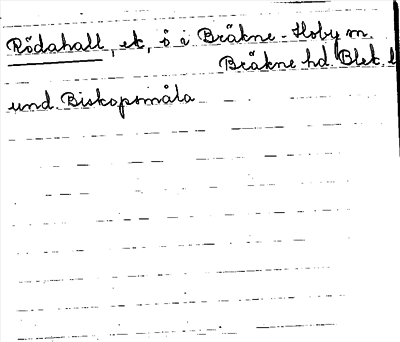 Rödahall, ek, ö i Bräkne-Hoby m.
Bräkne hd. Blek. l
und. Biskopsmåla